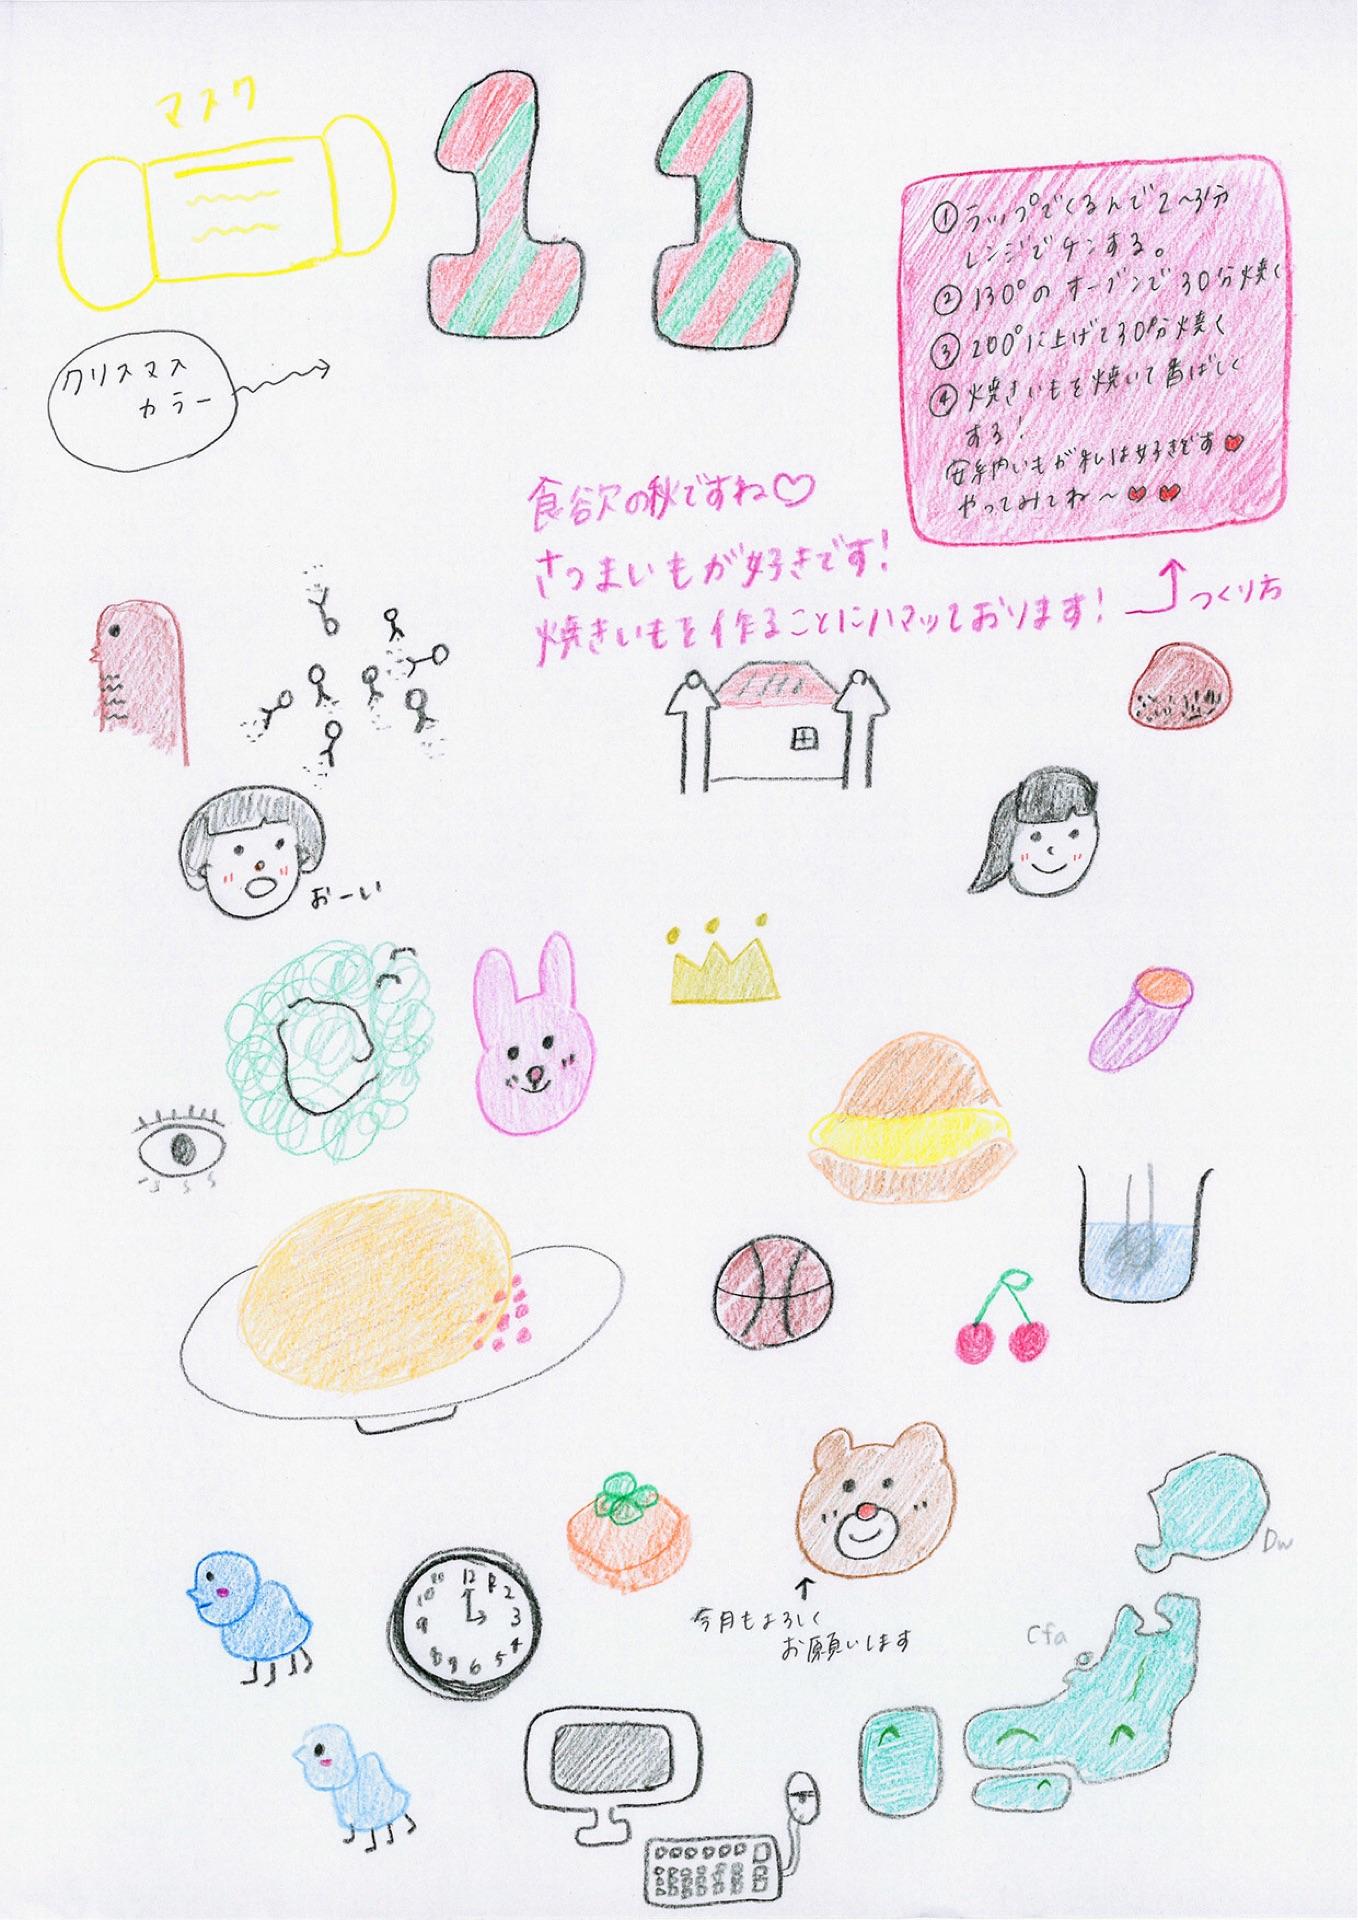 マスク
11
クリスマス
カラー
①ラップでくるんで2〜3分
レンジでチンする。
②130°のオーブンで30分焼く
③200°に上げて30分焼く
④焼きいもを焼いて香ばしく
する!
安納いもが私は好きです♥
やってみてね〜♥♥
食欲の秋ですね♡
さつまいもが好きです!
焼きいもを作ることにハマッております!
つくり方
おーい
12
1
2
3
4
5
6
7
8
9
10
11
今月もよろしく
お願いします
Dw
Cfa